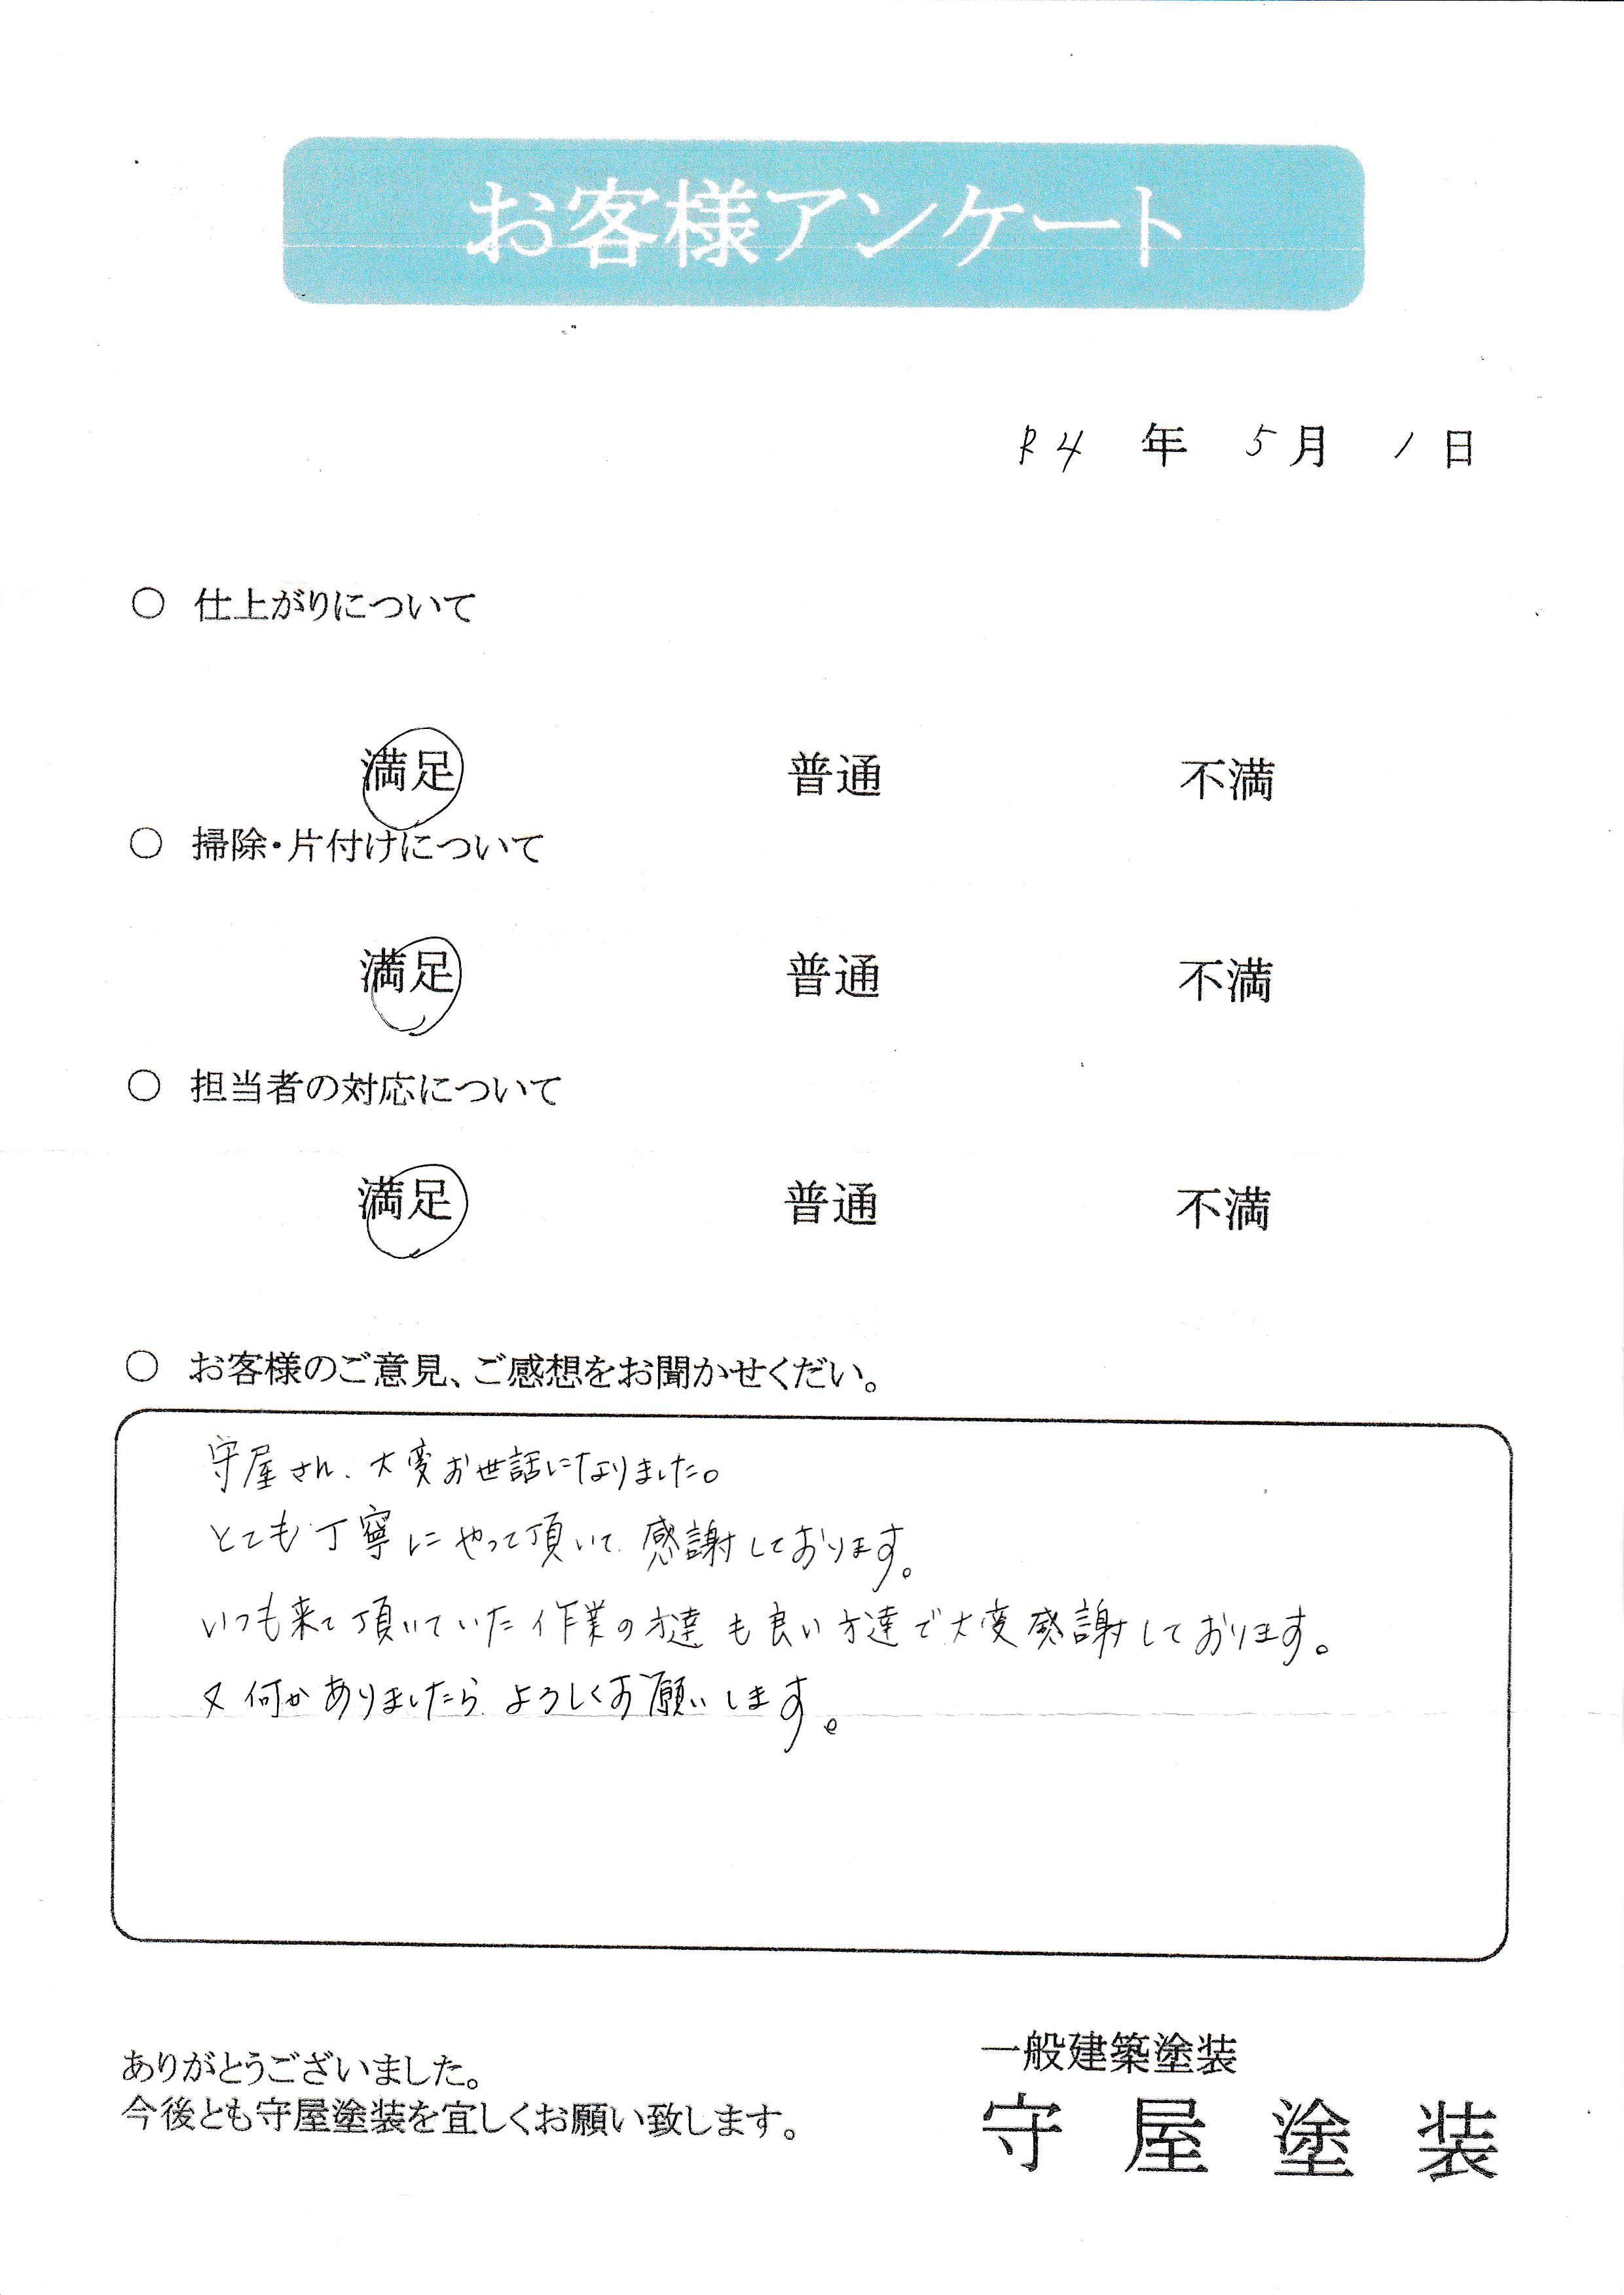 お客様アンケート
R4 年 5月 1日
○ 仕上がりについて
満足 普通 不満
○ 掃除・片付けについて
満足 普通 不満
○ 担当者の対応について
満足 普通 不満
○ お客様のご意見、ご感想をお聞かせくだい。
守屋さん、大変お世話になりました。
とても丁寧にやって頂いて、感謝しております。
いつも来て頂いていた作業の方達も良い方達で、大変感謝しております。
又何かありましたら、よろしくお願いします。
ありがとうございました。
今後とも守屋塗装を宜しくお願い致します。
一般建築塗装
守屋塗装